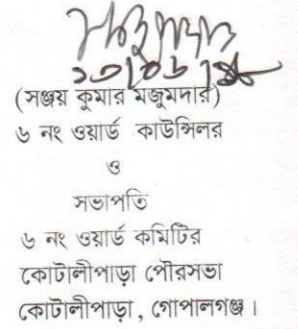 (সঞ্জয় কুমার মজুমদার)
৬ নং ওয়ার্ড কাউন্সিলর
ও
সভাপতি
৬ নং ওয়ার্ড কমিটির
কোটালীপাড়া পৌরসভা
কোটালীপাড়া, গোপালগঞ্জ।